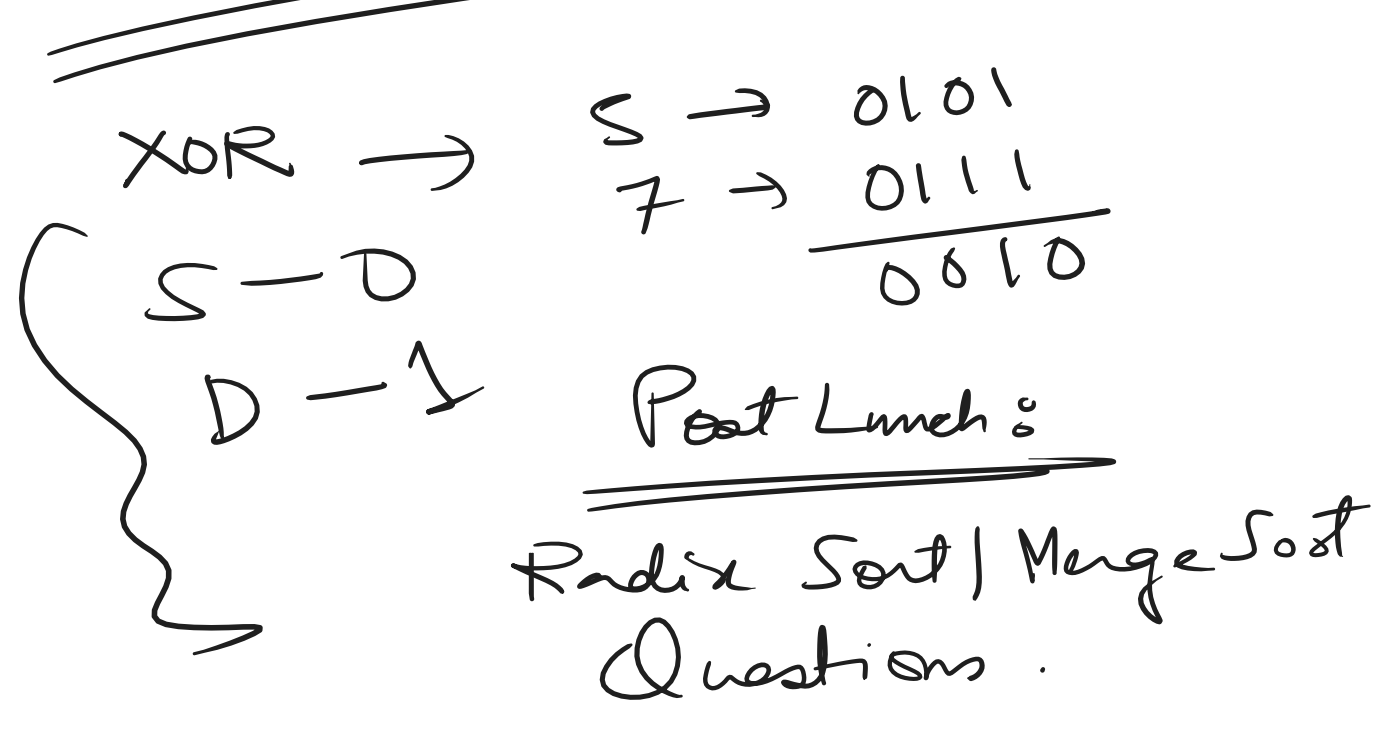 XOR → 5 → 0101
7 → 0111
0010
S - 0
D - 1
Post Lunch:
Radix Sort | Merge Sort
Questions.